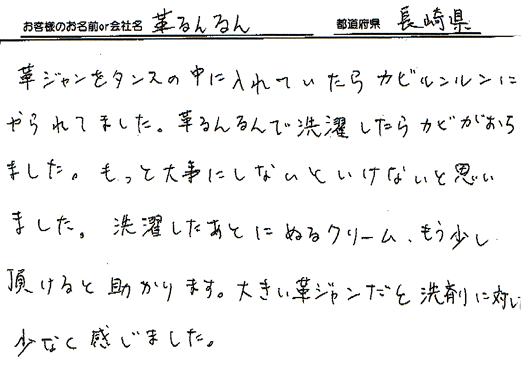 お客様のお名前or会社名 革るんるん 都道府県 長崎県
革ジャンをタンスの中に入れていたらカビルンルンに
やられてました。革るんるんで洗濯したらカビがおち
ました。もっと大事にしないといけないと思い
ました。洗濯したあとにぬるクリーム、もう少し
頂けると助かります。大きい革ジャンだと洗剤に対し
少なく感じました。